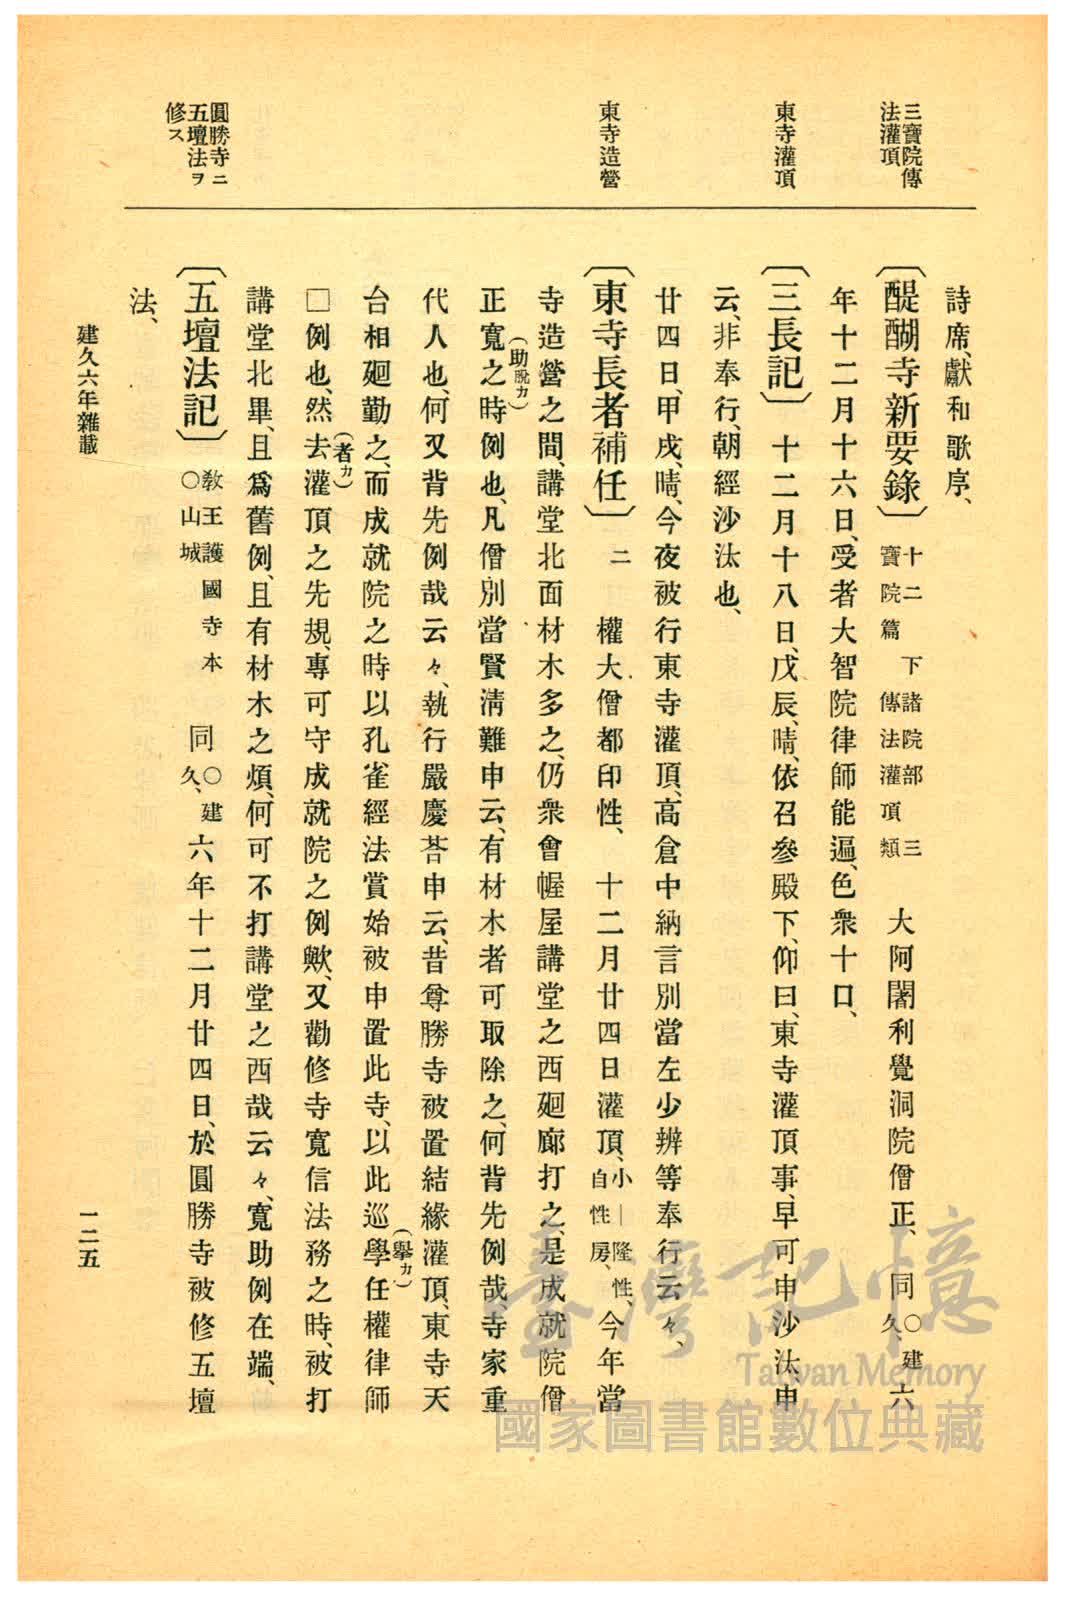 三寶院傳
法灌頂
東寺灌頂
東寺造營
圓勝寺ニ
五壇法ヲ
修ス
詩席、獻和歌序、
〔醍醐寺新要錄〕 十二 寶院篇 下諸院部三 傳法灌頂類 大阿闍利覺洞院僧正、同〇建久、六
年十二月十六日、受者大智院律師能遍、色衆十口、
〔三長記〕 十二月十八日、戊辰、晴、依召參殿下、仰曰、東寺灌頂事、早可申沙汰、申
云、非奉行、朝經沙汰也、
廿四日、甲戌、晴、今夜被行東寺灌頂、高倉中納言別當左少辨等奉行云々、
〔東寺長者補任〕 二 權大僧都印性、 十二月廿四日灌頂、小｜隆性、自性房、今年當
寺造營之間、講堂北面材木多之、仍衆會幄屋講堂之西廻廊打之、是成就院僧
正寬(助脫カ)之時例也、凡僧別當賢淸難申云、有材木者可取除之、何背先例哉、寺家重
代人也、何又背先例哉云々、執行嚴慶荅申云、昔尊勝寺被置結緣灌頂、東寺天
台相廻勤之、而成就院之時以孔雀經法賞始被申置此寺、以此巡學(擧カ)任權律師
□例也、然去(者カ)灌頂之先規、專可守成就院之例歟、又勸修寺寬信法務之時、被打
講堂北畢、且爲舊例、且有材木之煩、何可不打講堂之西哉云々、寬助例在端、
〔五壇法記〕 敎王護國寺本 〇山城 同〇建久、六年十二月廿四日、於圓勝寺被修五壇
法、
建久六年雜載
一二五
臺灣記憶
Taiwan Memory
國家圖書館數位典藏